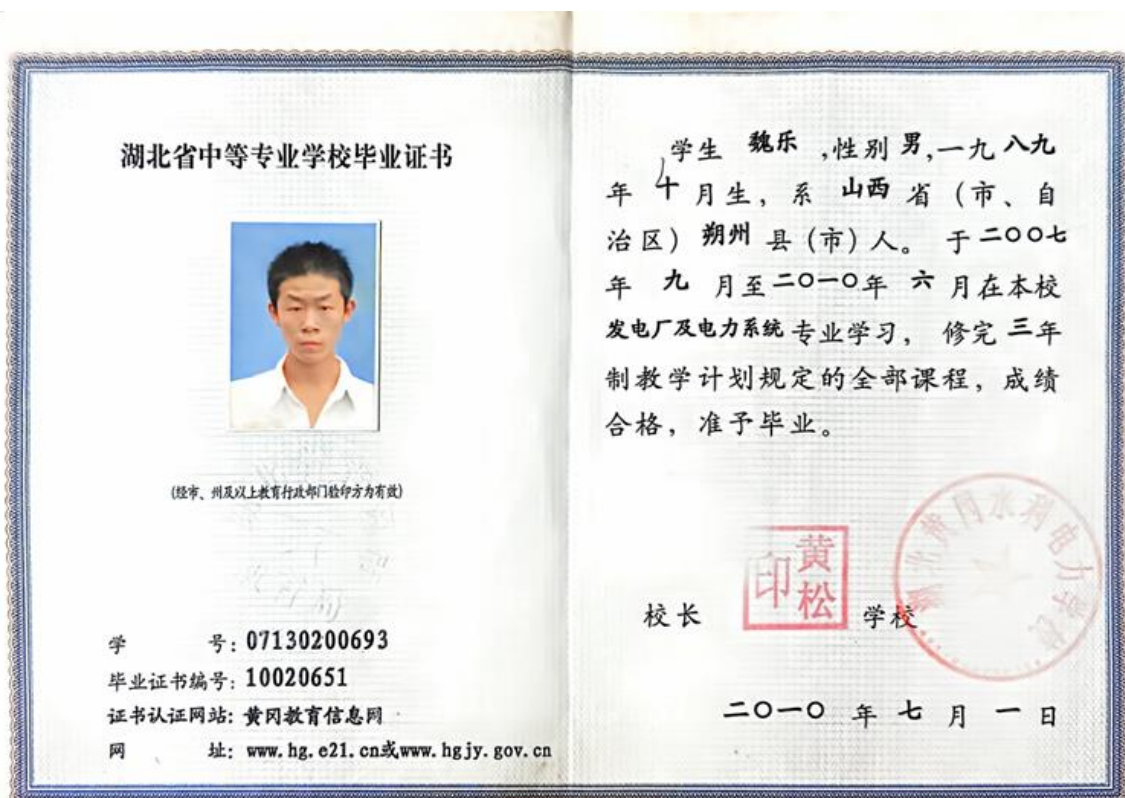 湖北省中等专业学校毕业证书
(经市、州及以上教育行政部门验印方为有效)
学 号: 07130200693
毕业证书编号: 10020651
证书认证网站: 黄冈教育信息网
网 址: www.hg.e21.cn或www.hgjy.gov.cn
学生 魏乐 ,性别 男,一九 八九
年 十 月生, 系 山西 省 (市、自
治区) 朔州 县 (市) 人。 于 二〇〇七
年 九 月至 二〇一〇年 六 月在本校
发电厂及电力系统 专业学习, 修完 三年
制教学计划规定的全部课程, 成绩
合格, 准予毕业。
黄松印
湖北黄冈水利电力学校
校长 学校
二〇一〇 年 七 月 一 日